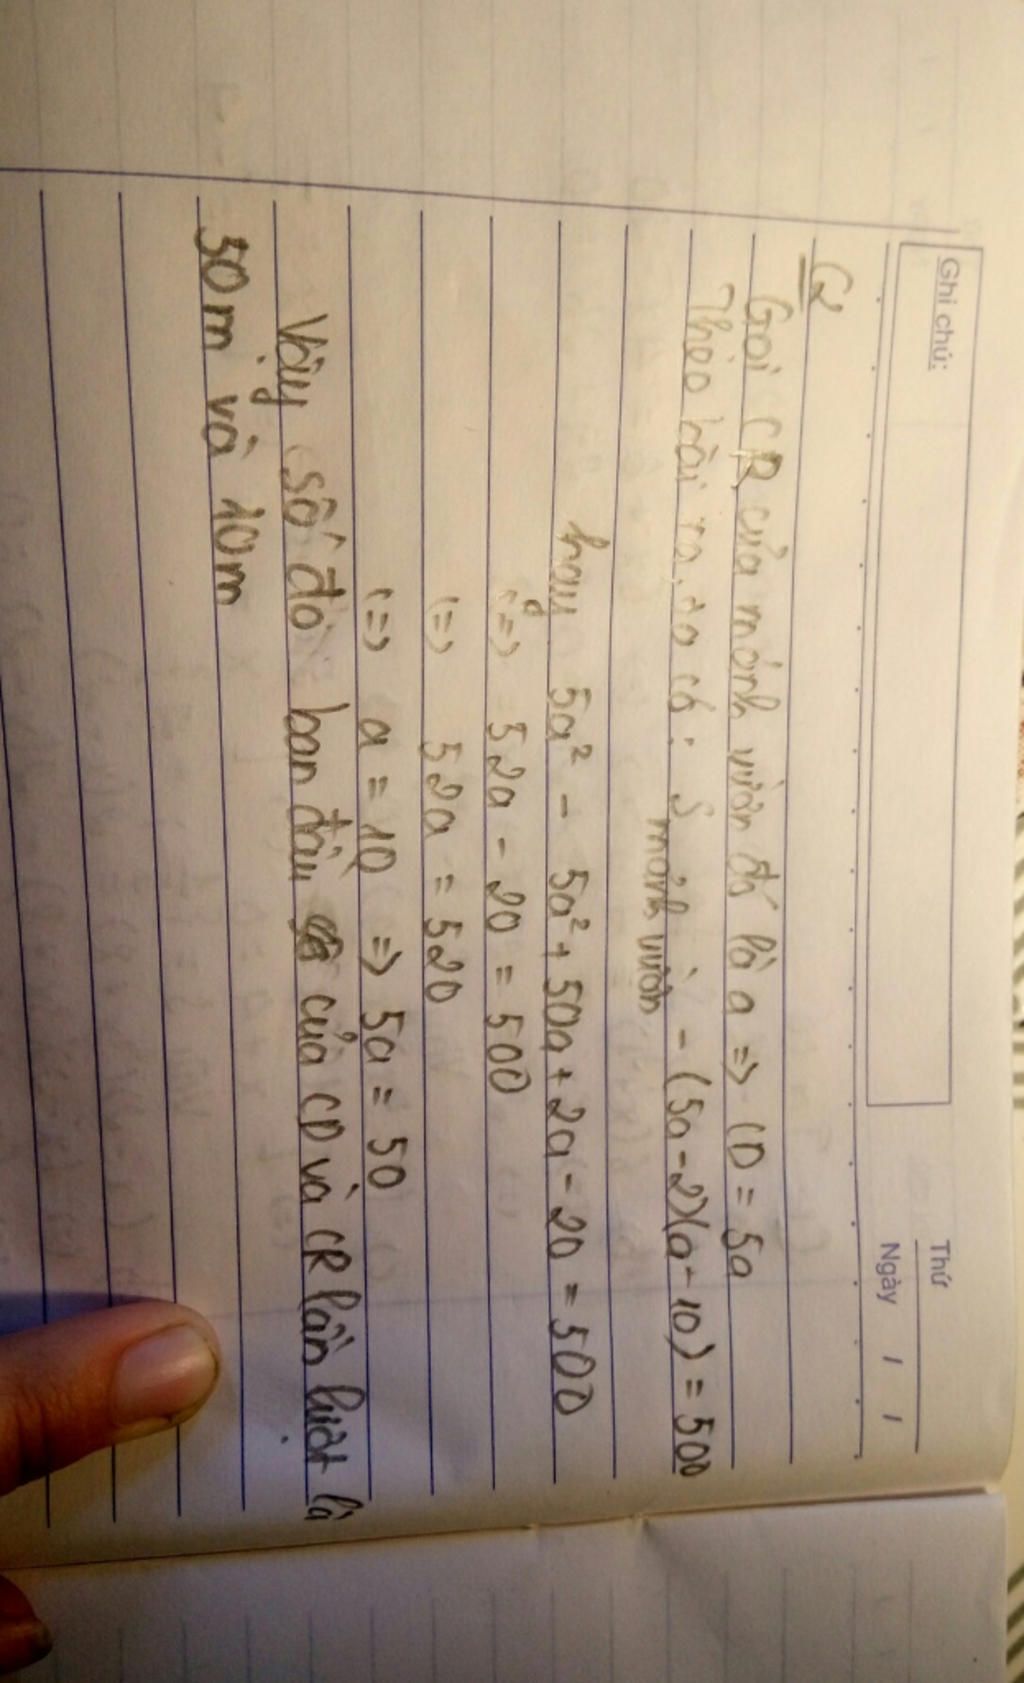 Ghi chú:
Thứ
Ngày / /
G
Gọi CR của mảnh vườn đó là a => CD = 5a
Theo bài ra, ta có: S mảnh vườn - (5a-2)(a-10) = 500
hay 5a² - 5a² + 50a + 2a - 20 = 500
<=> 52a - 20 = 500
<=> 52a = 520
<=> a = 10 => 5a = 50
Vậy số đo ban đầu của CD và CR lần lượt là
50m và 10m